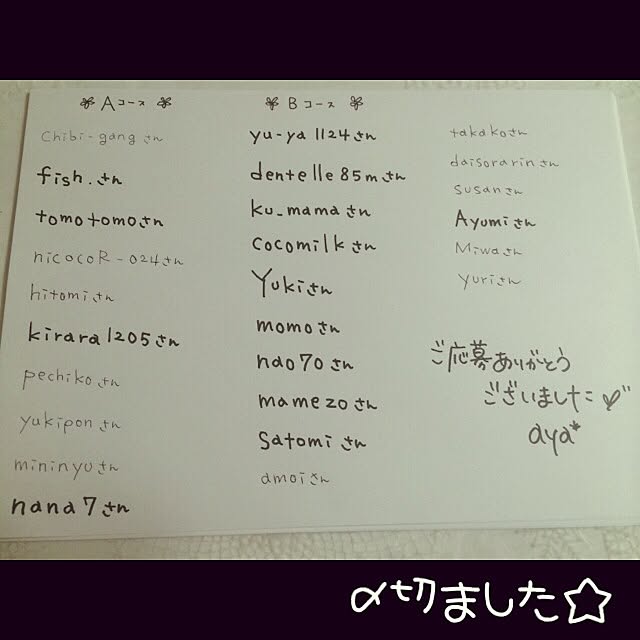 Aコース
chibi-gangさん
fish.さん
tomotomoさん
nicocoR-024さん
hitomiさん
kirara1205さん
pechikoさん
yukiponさん
mininyuさん
nana7さん
Bコース
yu-ya1124さん
dentelle85mさん
ku_mamaさん
cocomilkさん
Yukiさん
momoさん
nao70さん
mamezoさん
satomiさん
amoiさん
takakoさん
daisorarinさん
susanさん
Ayumiさん
Miwaさん
yuriさん
ご応募ありがとう
ございました♡
aya*
〆切ました☆